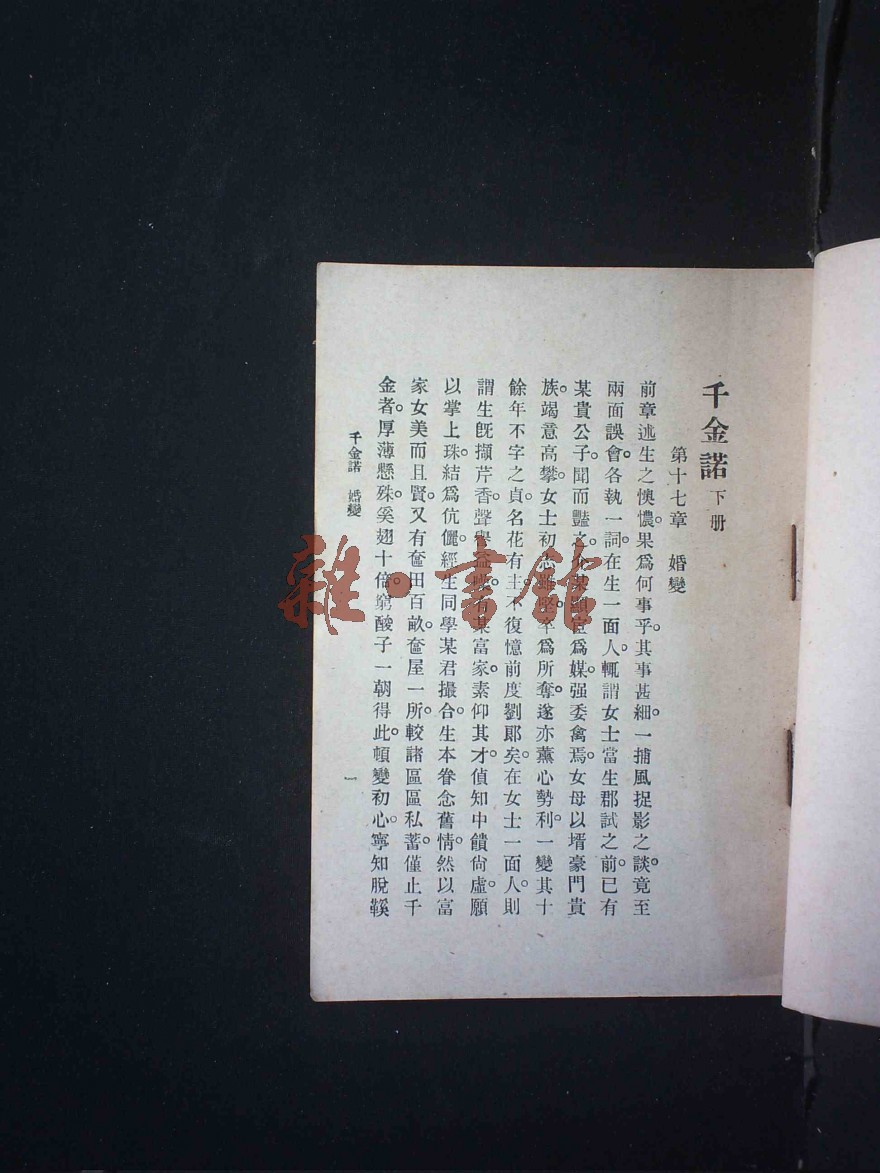 千金諾 下册
第十七章 婚變
前章逃生之懊憹。果爲何事乎。其事甚細。一捕風捉影之談。竟至
兩面誤會。各執一詞。在生一面人。輒謂女士當生郡試之前。已有
某貴公子。聞而豔之。介某顯宦爲媒。强委禽焉。女母以壻豪門貴
族。竭意高攀。女士初志雖堅。卒爲所奪。遂亦薰心勢利。一變其十
餘年不字之貞。名花有主。不復憶前度劉郞矣。在女士一面人。則
謂生旣擷芹香。聲譽益。有某富家。素仰其才。偵知中饋尙虛。願
以掌上珠。結爲伉儷。經生同學某君撮合。生本眷念舊情。然以富
家女美而且賢。又有奩田百畝。奩屋一所。較諸區區私蓄。僅止千
金者。厚薄懸殊。奚翅十倍。窮酸子一朝得此。頓變初心。寧知脫鞵
千金諾 婚變
一
雜·書館